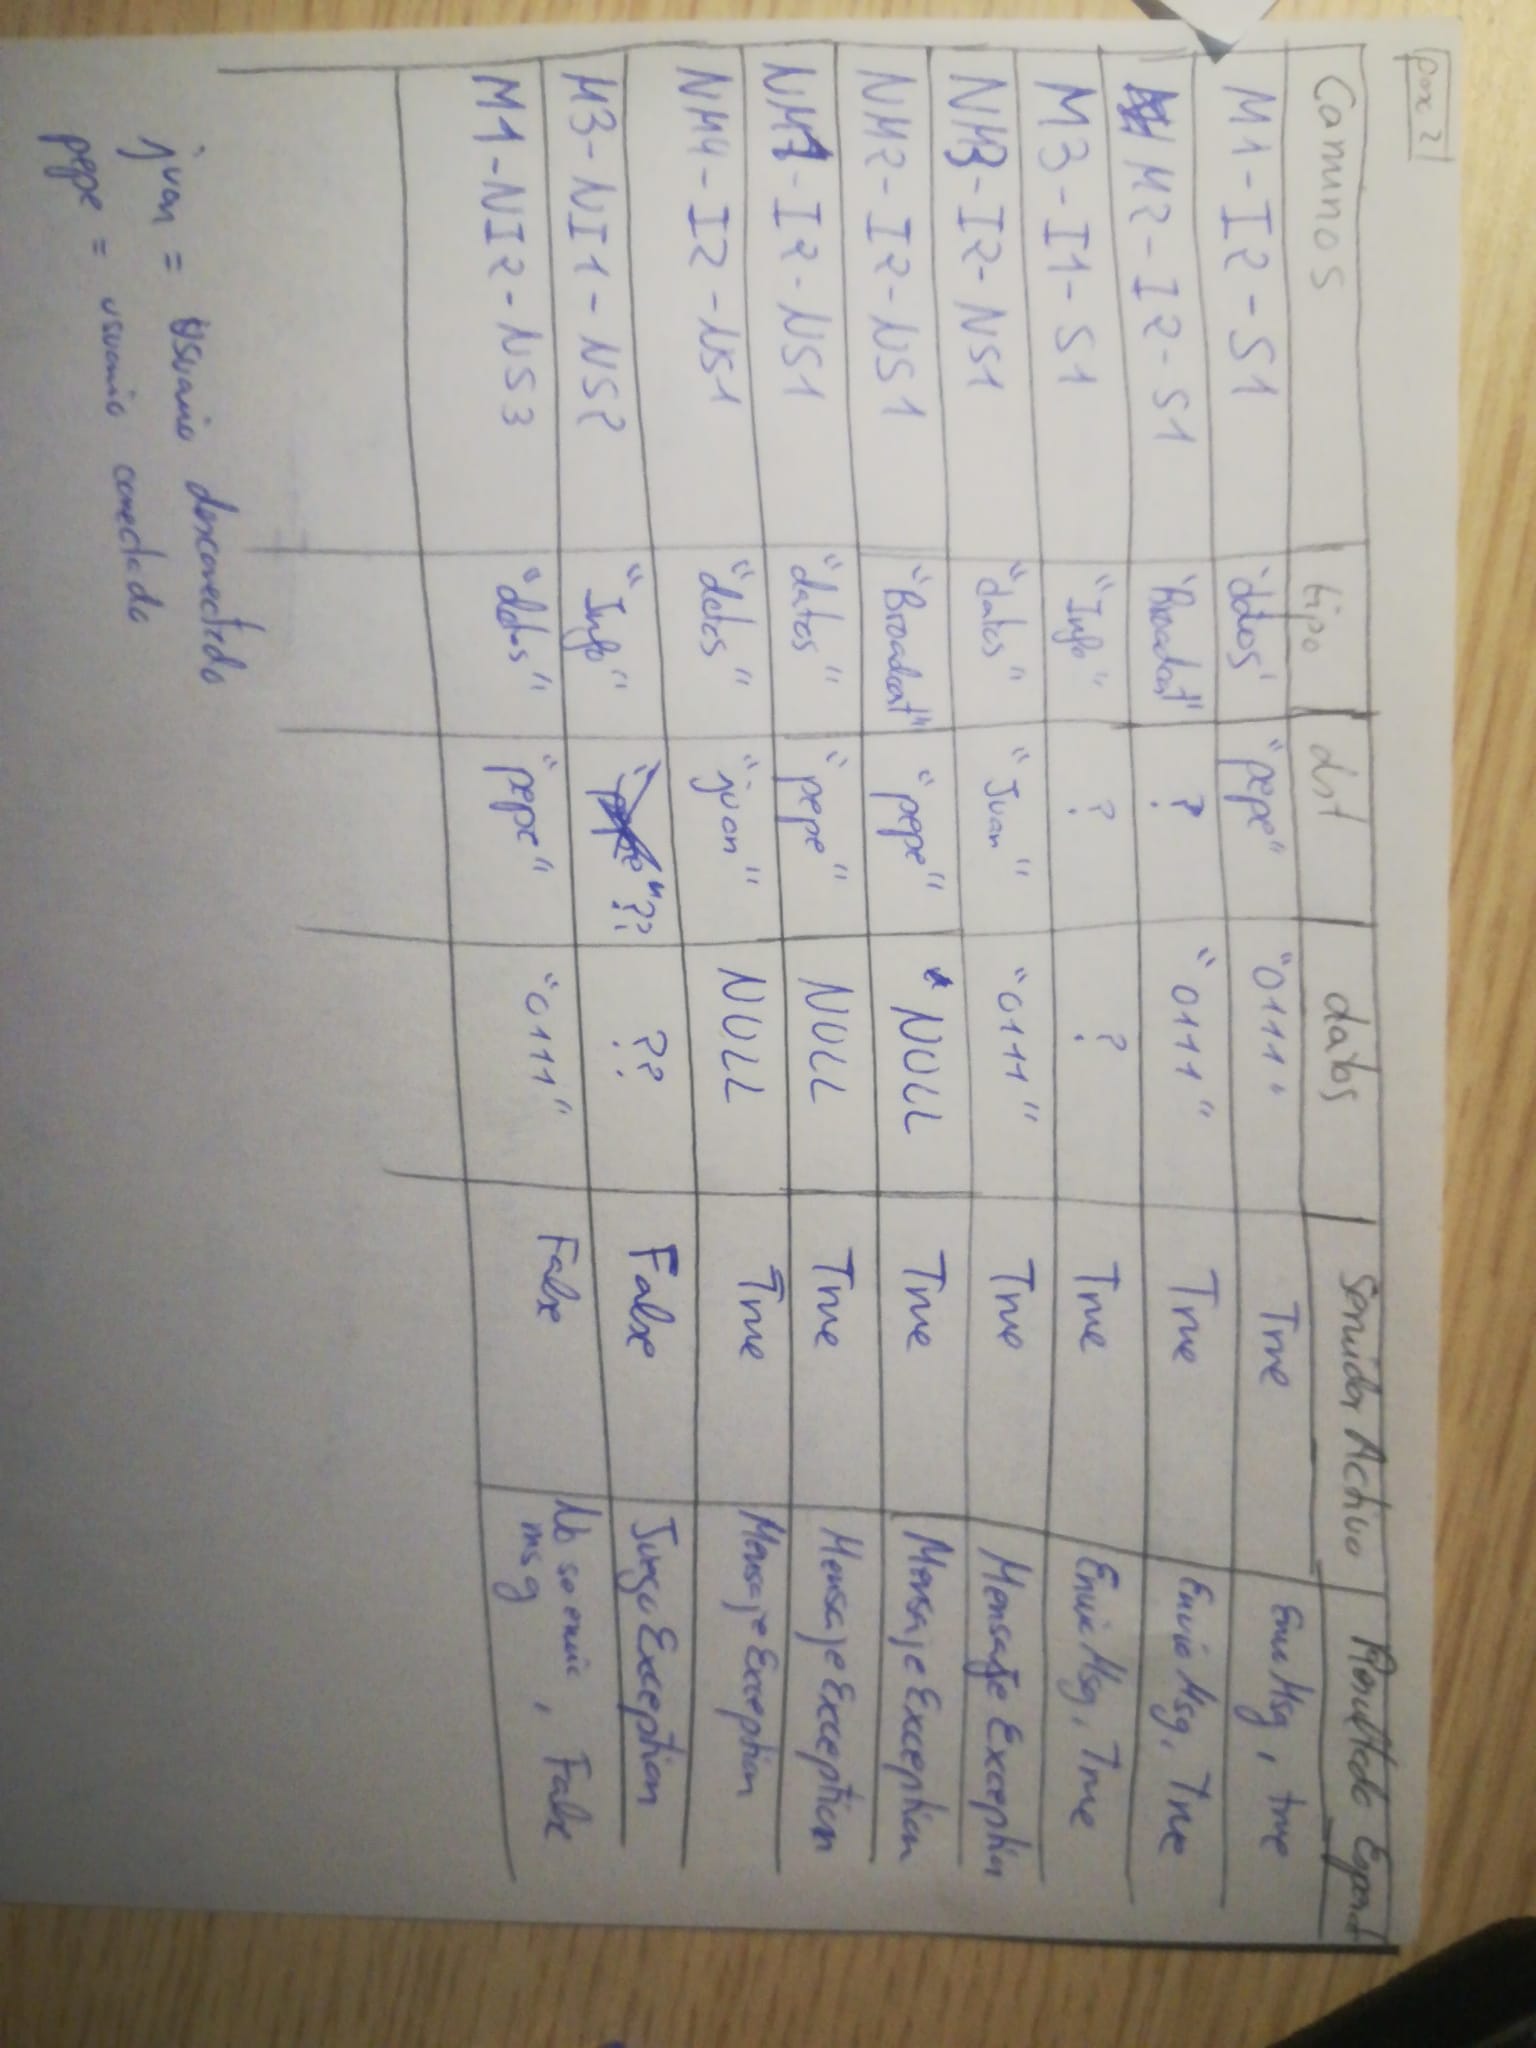 pax 2
Caminos tipo dst datos Servidor Activo Resultado Esperad
M1-I2-S1 "datos" "pepe" "0111" True Envia Msg, true
M2-I2-S1 "Broadcast" ? "0111" True Envia Msg, True
M3-I1-S1 "Info" ? ? True Envia Msg, True
NM3-I2-NS1 "datos" "Juan" "0111" True Mensaje Exception
NM2-I2-NS1 "Broadcast" "pepe" NULL True Mensaje Exception
NM1-I2-NS1 "datos" "pepe" NULL True Mensaje Exception
NM4-I2-NS1 "datos" "juan" NULL True Mensaje Exception
M3-NI1-NS2 "Info" ?? ?? False Juego Exception
M1-NI2-NS3 "datos" "pepe" "0111" False No se envia, False
msg
juan = usuario desconectado
pepe = usuario conectado